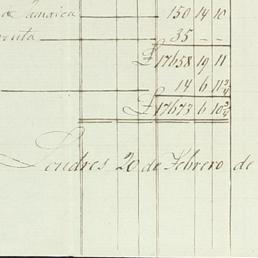 de Jamaica 150 14 10
35 - -
£ 17658 19 11
14 6 11¾
£ 17673 6 10¾
Londres 20 de Febrero de